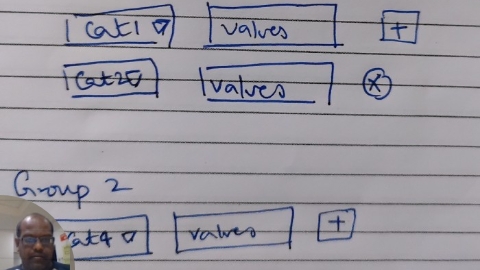 Cat1 ▽ values +
Cat2 ▽ values x
Group 2
Cat4 ▽ values +